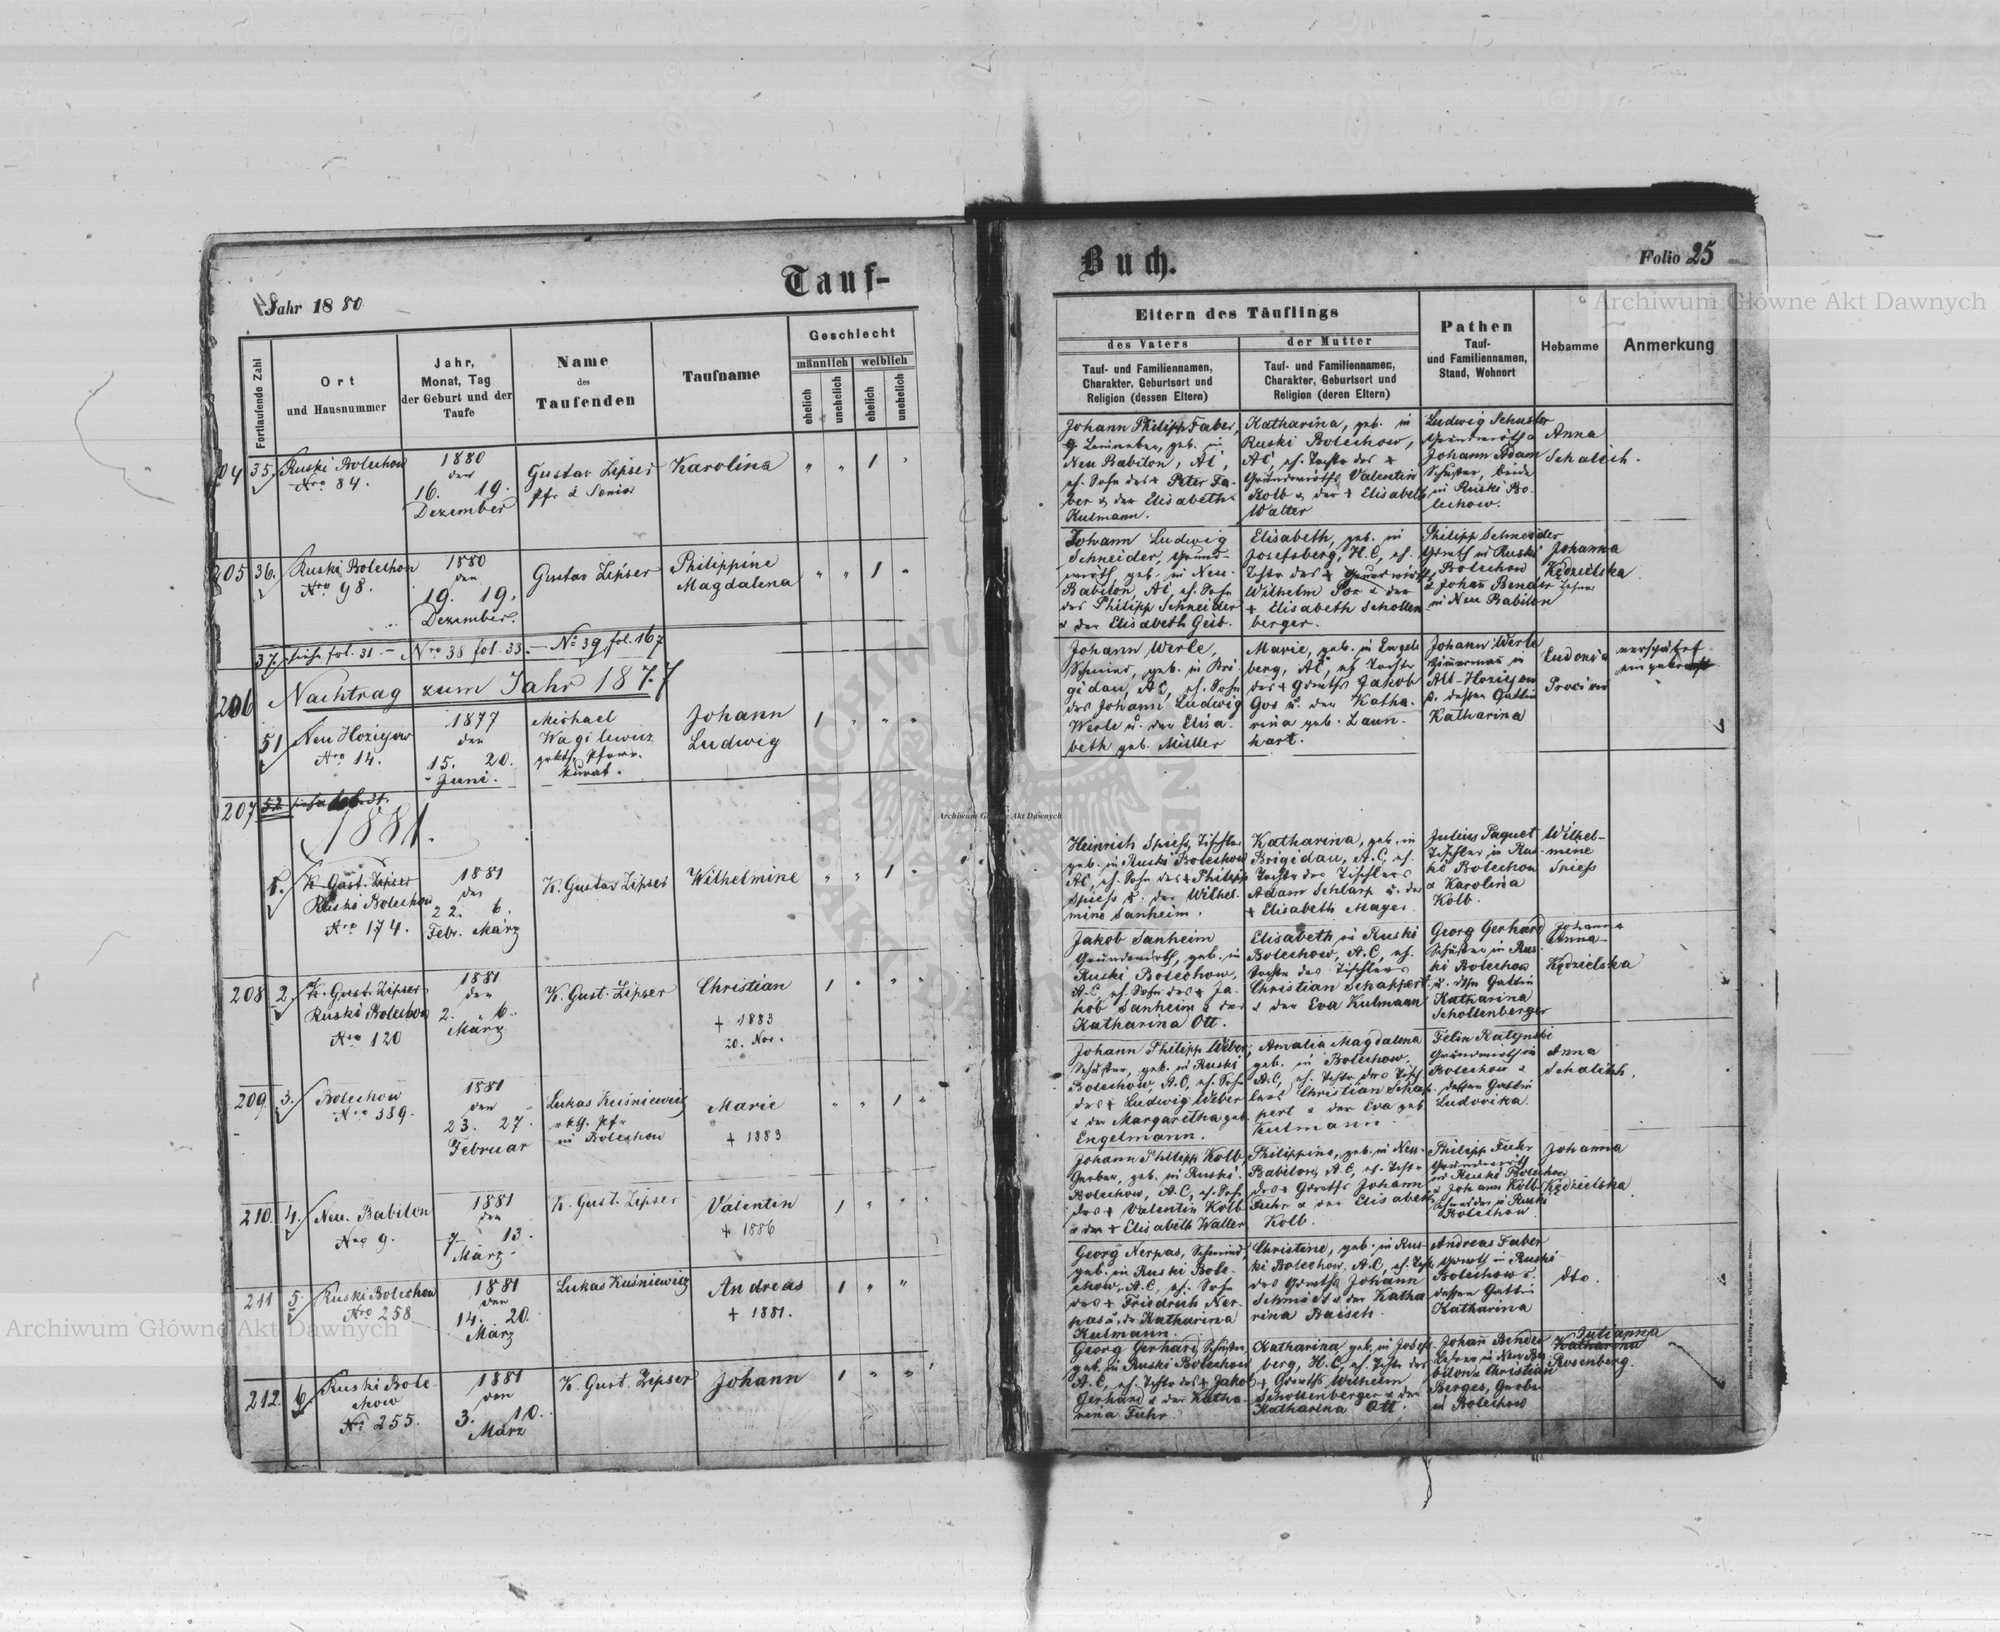 Tauf-
Jahr 1880
Fortlaufende Zahl
Ort
und Hausnummer
Jahr,
Monat, Tag
der Geburt und der
Taufe
Name
des
Taufenden
Taufname
Geschlecht
männlich weiblich
ehelich
unehelich
ehelich
unehelich
204 35. Ruski Bolechow
Nro 84.
1880
den
16. 19.
Dezember
Gustav Zipser
Pfr & Senior
Karolina
" " 1 "
205 36. Ruski Bolechow
Nro 98.
1880
den
19. 19.
Dezember.
Gustav Zipser
Philippine
Magdalena
" " 1 "
37. siehe fol. 31. – Nro 38 fol. 33. – No 39 fol. 167
206 Nachtrag zum Jahr 1877
51 Neu Hoziejow
Nro 14.
1877
den
15. 20.
Juni.
Michael
Wagilewicz
Pfarr-
kurat.
Johann
Ludwig
1 " " "
207 52
1881.
1. K. Gust. Zipser
Ruski Bolechow
Nro 174.
1881
den
22. 6.
Febr. März
K. Gustav Zipser
Wilhelmine
" " 1 "
208 2. K. Gust. Zipser
Ruski Bolechow
Nro 120
1881
den
2. 6.
März
K. Gust. Zipser
Christian
+ 1883
20. Nov.
1 " " "
209 3. Bolechow
Nro 389.
1881
den
23. 27.
Februar
Lukas Kuśniewicz
rkth. Pfr
in Bolechow
Marie
+ 1883
" " 1 "
210. 4. Neu Babilon
Nro 9.
1881
den
7. 13.
März.
K. Gust. Zipser
Valentin
+ 1886
1 " " "
211 5. Ruski Bolechow
Nro 258
1881
den
14. 20.
März
Lukas Kuśniewicz
Andreas
+ 1881.
1 " "
212. 6. Ruski Bole-
chow
Nro 255.
1881
den
3. 10.
März
K. Gust. Zipser
Johann
1 " "
Buch.
Folio 25
Eltern des Täuflings
des Vaters
Tauf- und Familiennamen,
Charakter, Geburtsort und
Religion (dessen Eltern)
der Mutter
Tauf- und Familiennamen,
Charakter, Geburtsort und
Religion (deren Eltern)
Pathen
Tauf-
und Familiennamen,
Stand, Wohnort
Hebamme
Anmerkung
Johann Philipp Faber,
geb. in
Neu Babilon, AC,
eh. Sohn des + Peter Fa-
ber & der Elisabeth
Kulmann.
Katharina, geb. in
Ruski Bolechow,
AC, eh. Tochter des +
Grundwirths Valentin
Kolb & der + Elisabeth
Walter
Ludwig Schuster
Grundwirth &
Johann Adam
Schuster, beide
in Ruski Bo-
lechow.
Anna
Schalich.
Johann Ludwig
Schneider, Grund-
wirth geb. in Neu-
Babilon, AC, eh. Sohn
des Philipp Schneider
& der Elisabeth Geib.
Elisabeth, geb. in
Josefsberg, H.C, eh.
Tochter des + Grundwirths
Wilhelm Por & der
+ Elisabeth Schollen-
berger.
Philipp Schneider
Grwth in Ruski
Bolechow
& Johann Bender Lehrer
in Neu Babilon
Johanna
Kędzielska
Johann Werle,
Schmied, geb. in Bri-
gidau, AC, eh. Sohn
des Johann Ludwig
Werle u. der Elisa-
beth geb. Müller
Marie, geb. in Engels-
berg, AC, eh. Tochter
des Grwths Jakob
Gos u. der Katha-
rina geb. Laun-
hart.
Johann Werle
Zimmermann in
Alt-Hoziejow
& dessen Gattin
Katharina
Eudonia
Prociow
verspätet
eingebracht
Heinrich Spiess, Tischler
geb. in Ruski Bolechow
AC, eh. Sohn des + Philipp
Spiess u. der Wilhel-
mine Sanheim.
Katharina, geb. in
Brigidau, A.C, eh.
Tochter des Tischlers
Adam Schlarp u. der
+ Elisabeth Mayer
Julius Paquet
Tischler in Rus-
ki Bolechow
& Karolina
Kolb.
Wilhel-
mine
Spiess
Jakob Sanheim
Grundwirth, geb. in
Ruski Bolechow,
A.C, eh. Sohn des + Ja-
kob Sanheim & der
Katharina Ott.
Elisabeth in Ruski
Bolechow, A.C, eh.
Tochter des Tischlers
Christian Schappert
& der Eva Kulmann
Georg Gerhard
Schuster in Rus-
ki Bolechow
u. dssn Gattin
Katharina
Schollenberger
Johanna
Anna
Kędzielska
Johann Philipp Weber,
Schuster, geb. in Ruski
Bolechow, A.C, eh. Sohn
des + Ludwig Weber
& der Margaretha geb.
Engelmann.
Amalia Magdalena
geb. in Bolechow,
A.C, eh. Tochter des Tisch-
lers Christian Schap-
pert & der Eva geb.
Kulmann
Felix Ratynski
Grundwirth in
Bolechow &
dessen Gattin
Ludovika.
Anna
Schalich.
Johann Philipp Kolb,
Gerber, geb. in Ruski
Bolechow, A.C, eh. Sohn
des + Valentin Kolb
& der + Elisabeth Walter
Philippine, geb. in Neu-
Babilon, A.C, eh. Tochter
des + Grwths Johann
Fuhr & der Elisabeth
Kolb.
Philipp Fuhr
Grundwirth
in Ruski Bolechow
& Johann Kolb
Schneider in Ruski
Bolechow
Johanna
Kędzielska
Georg Nerpas, Schmied
geb. in Ruski Bole-
chow, A.C, eh. Sohn
des + Friedrich Ner-
pas u. der Katharina
Kulmann.
Christine, geb. in Rus-
ki Bolechow, A.C, eh. Tochter
des Grwths Johann
Schmidt & der Katha-
rina Baisch.
Andreas Faber
Grwth in Ruski
Bolechow u.
dessen Gattin
Katharina
dto.
Georg Gerhard, Schuster,
geb. in Ruski Bolechow
A.C, eh. Sohn des + Jakob
Gerhard & der Katha-
rina Fuhr.
Katharina geb. in Josefs-
berg, H.C, eh. Tochter des
+ Grwths Wilhelm
Schollenberger & der
Katharina Ott.
Johann Bender
Lehrer in Neu Ba-
bilon & Christian
Berges, Gerber
in Bolechow
Julianna
Katharina
Rosenberg
Archiwum Główne Akt Dawnych
Archiwum Główne Akt Dawnych
Archiwum Główne Akt Dawnych